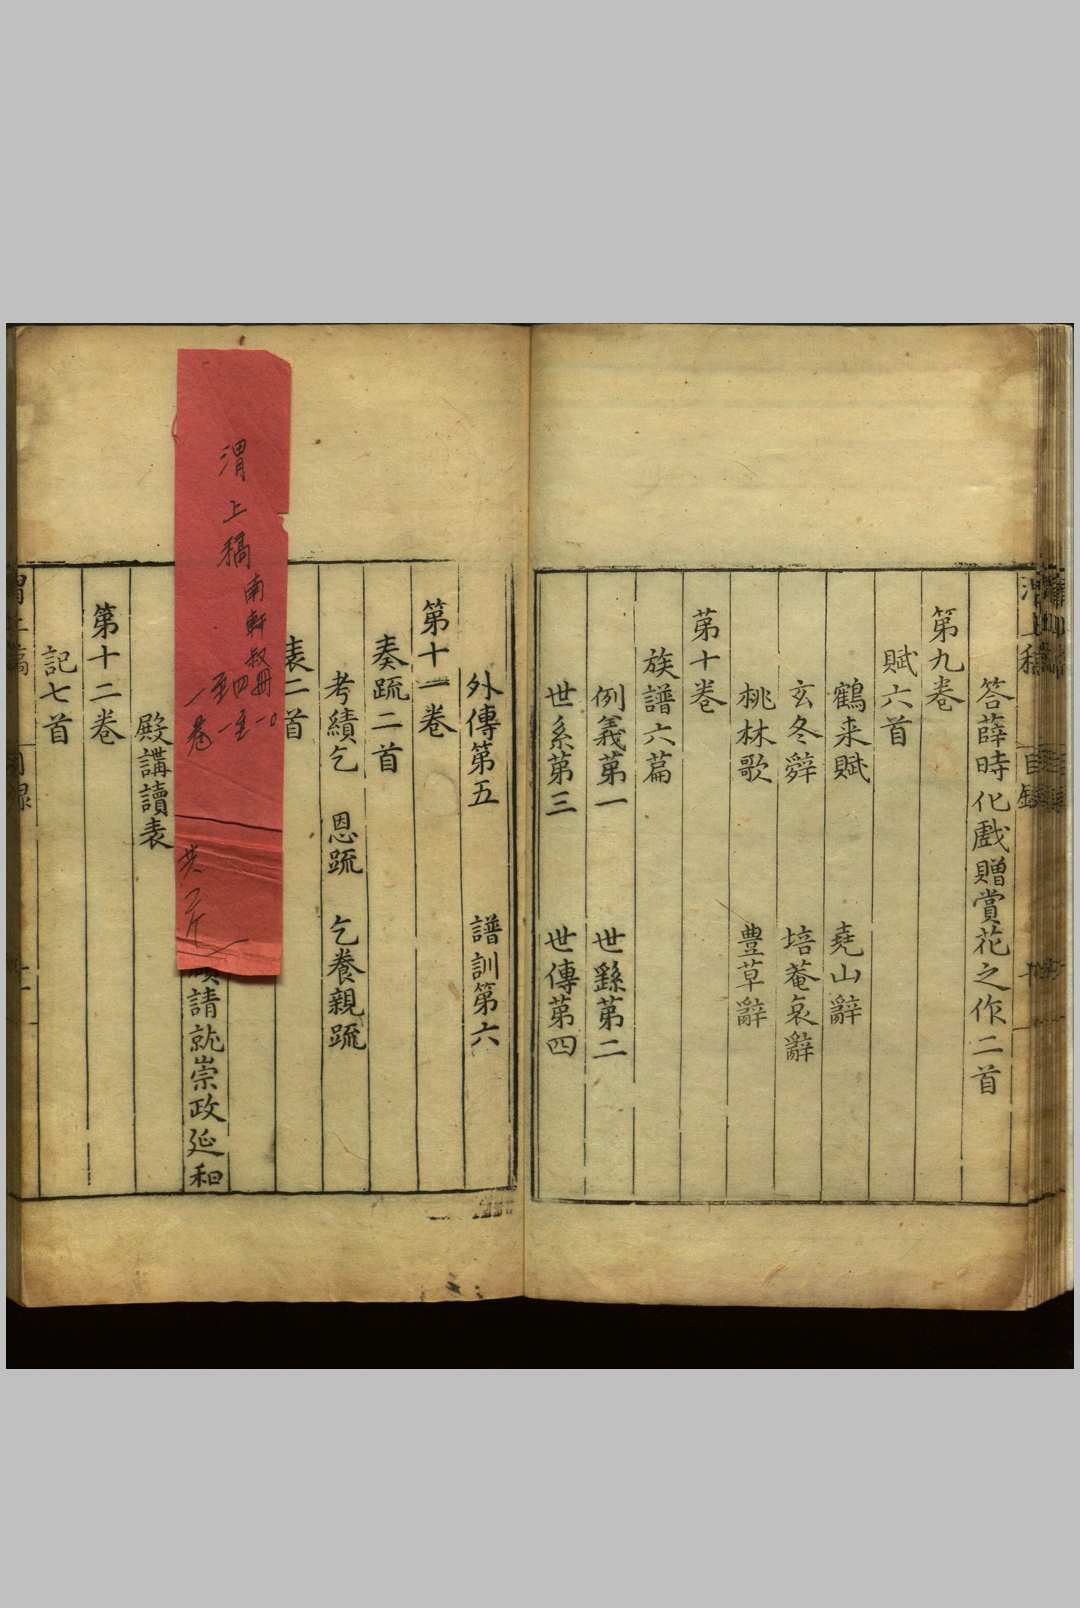 答薛時化戲贈賞花之作二首
第九卷
賦六首
鶴来賦 堯山辭
玄冬辤 培菴哀辭
桃林歌 豊草辭
苐十卷
族譜六篇
例義苐一 世繇苐二
世系第三 世傳苐四
外傳第五 譜訓第六
第十一卷
奏疏二首
考績乞 恩疏 乞養親疏
表二首
請就崇政延和
殿講讀表
第十二卷
記七首
渭上稿
南軒
卷
共
渭上稿 目録